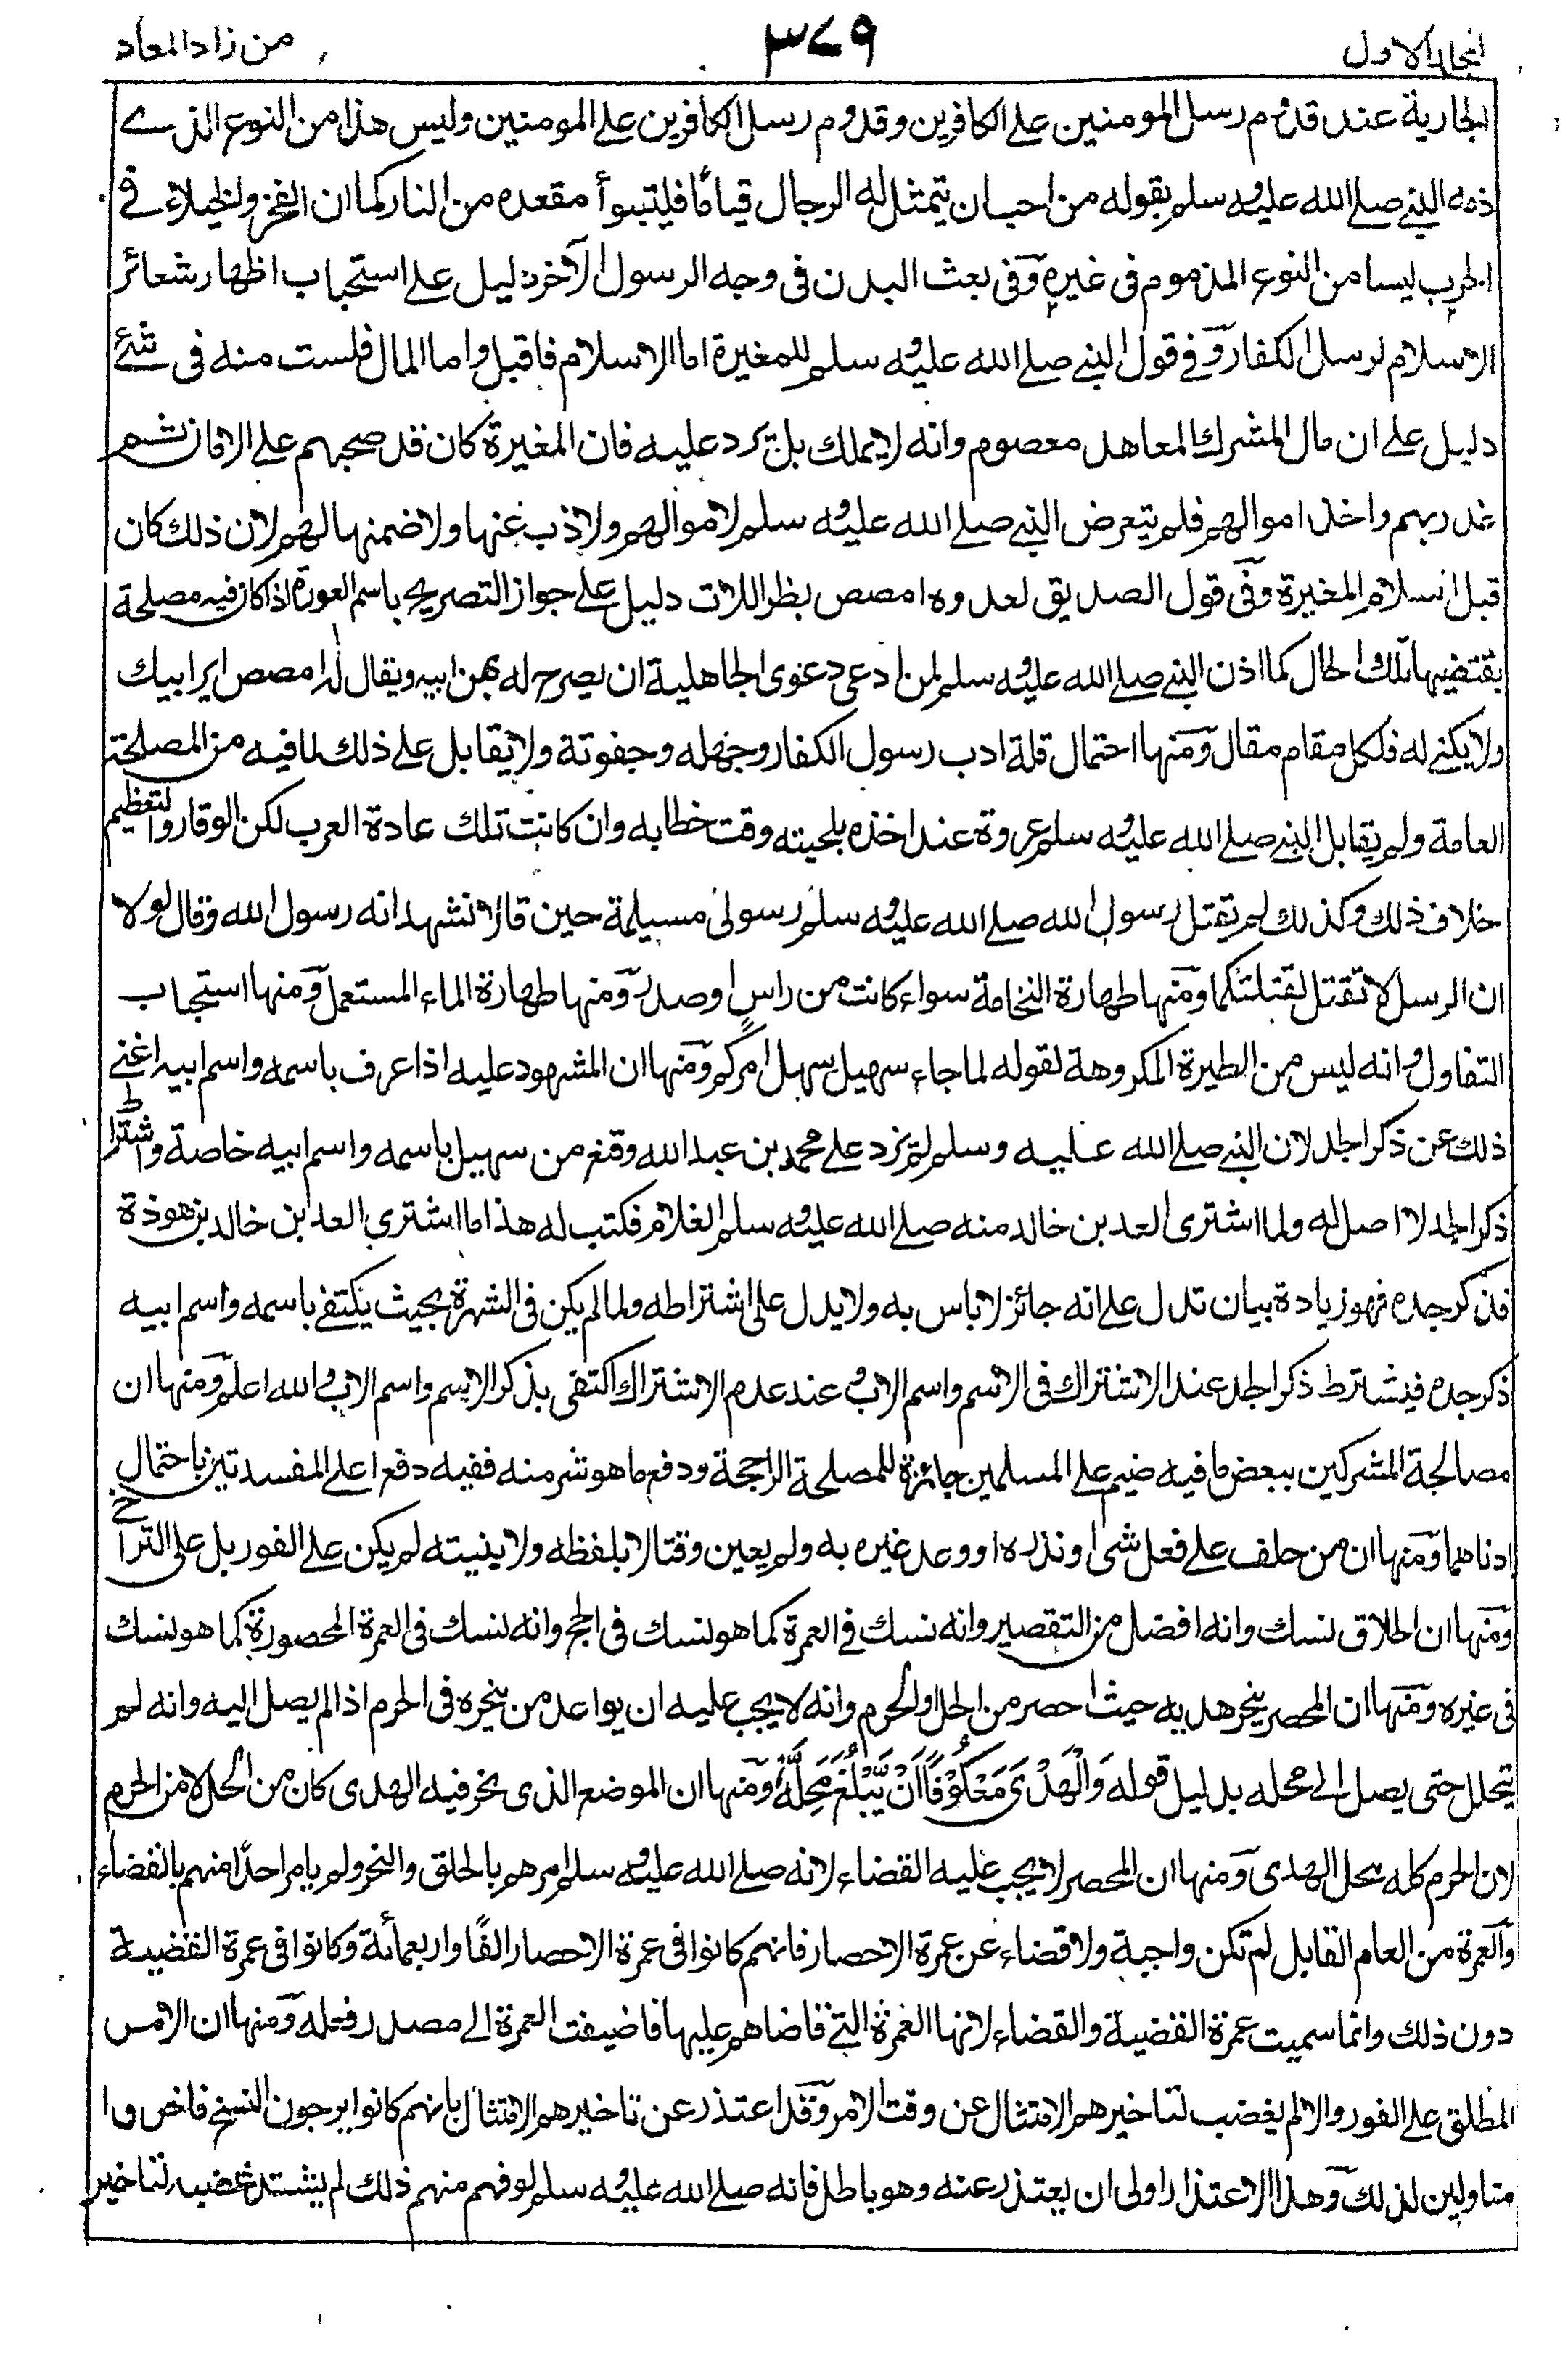 المجلد الاول
٣٧٩
من زاد المعاد
الجارية عند قدوم رسل المومنين على الكافرين وقدوم رسل الكافرين على المومنين وليس هذا من النوع الذى
ذمه النبى صلى الله عليه وسلم بقوله من احب ان يتمثل له الرجال قياما فليتبوأ مقعده من النار كما ان الفخر والخيلاء فى
الحرب ليسا من النوع المذموم فى غيره وفى بعث البدن فى وجه الرسول الآخر دليل على استحباب اظهار شعائر
الاسلام لرسل الكفار وفى قول النبى صلى الله عليه وسلم للمغيرة اما الاسلام فاقبل واما المال فلست منه فى شئ
دليل على ان مال المشرك المعاهد معصوم وانه لا يملك بل يرد عليه فان المغيرة كان قد صحبهم على الامان ثم
غدر بهم واخذ اموالهم فلم يتعرض النبى صلى الله عليه وسلم لاموالهم ولا ذب عنها ولا ضمنها لهم لان ذلك كان
قبل اسلام المغيرة وفى قول الصديق لعروه امصص بظر اللات دليل على جواز التصريح باسم العورة اذا كان فيه مصلحة
يقتضيها تلك الحال كما اذن النبى صلى الله عليه وسلم لمن ادعى دعوى الجاهلية ان يصرح له بهن ابيه ويقال له امصص اير ابيك
ولا يكنى له فلكل مقام مقال ومنها احتمال قلة ادب رسول الكفار وجهله وجفوته ولا يقابل على ذلك لما فيه من المصلحة
العامة ولم يقابل النبى صلى الله عليه وسلم عروة عند اخذه بلحيته وقت خطابه وان كانت تلك عادة العرب لكن الوقار والتعظيم
خلاف ذلك وكذلك لم يقتل رسول الله صلى الله عليه وسلم رسولى مسيلمة حين قالا نشهد انه رسول الله وقال لولا
ان الرسل لا تقتل لقتلتكما ومنها طهارة النخامة سواء كانت من راس او صدر ومنها طهارة الماء المستعمل ومنها استحباب
التفاول وانه ليس من الطيرة المكروهة لقوله لما جاء سهيل سهل امركم ومنها ان المشهود عليه اذا عرف باسمه واسم ابيه اغنى
ذلك عن ذكر الجد لان النبى صلى الله عليه وسلم لم يزد على محمد بن عبد الله وقنع من سهيل باسمه واسم ابيه خاصة واشتراط
ذكر الجد لا اصل له ولما اشترى العد بن خالد منه صلى الله عليه وسلم الغلام فكتب له هذا ما اشترى العد بن خالد بن هوذة
فذكر جده فهو زيادة بيان تدل على انه جائز لا باس به ولا يدل على اشتراطه ولما لم يكن فى الشهرة بحيث يكتفى باسمه واسم ابيه
ذكر جده فيشترط ذكر الجد عند الاشتراك فى الاسم واسم الاب وعند عدم الاشتراك اكتفى بذكر الاسم واسم الاب والله اعلم ومنها ان
مصالحة المشركين ببعض ما فيه ضيم على المسلمين جائزة للمصلحة الراجحة ودفع ما هو شر منه ففيه دفع اعلى المفسدتين باحتمال
ادناهما ومنها ان من حلف على فعل شئ او نذره او وعد غيره به ولم يعين وقتا لا بلفظه ولا بنيته لم يكن على الفور بل على التراخى
ومنها ان الحلاق نسك وانه افضل من التقصير وانه نسك فى العمرة كما هو نسك فى الحج وانه نسك فى العمرة المحصورة كما هو نسك
فى غيره ومنها ان المحصر ينحر هديه حيث احصر من الحل والحرم وانه لا يجب عليه ان يواعد من ينحره فى الحرم اذا لم يصل اليه وانه لم
يتحلل حتى يصل الى محله بدليل قوله وَالْهَدْىَ مَعْكُوْفًا اَنْ يَّبْلُغَ مَحِلَّهُ ومنها ان الموضع الذى نحر فيه الهدى كان من الحل لا من الحرم
لان الحرم كله محل الهدى ومنها ان المحصر لا يجب عليه القضاء لانه صلى الله عليه وسلم امرهم بالحلق والنحر ولم يامر احدًا منهم بالقضاء
والعمرة من العام القابل لم تكن واجبة ولا قضاء عن عمرة الاحصار فانهم كانوا فى عمرة الاحصار الفًا واربعمأئة وكانوا فى عمرة القضية
دون ذلك وانما سميت عمرة القضية والقضاء لانها العمرة التى قاضاهم عليها فاضيفت العمرة الى مصدر فعله ومنها ان الامر
المطلق على الفور والا لم يغضب لتاخيرهم الامتثال عن وقت الامر وقد اعتذر عن تاخيرهم الامتثال بانهم كانوا يرجون النسخ فاخروا
متاولين لذلك وهذا الاعتذار اولى ان يعتذر عنه وهو باطل فانه صلى الله عليه وسلم لو فهم منهم ذلك لم يشتد غضبه لتاخير